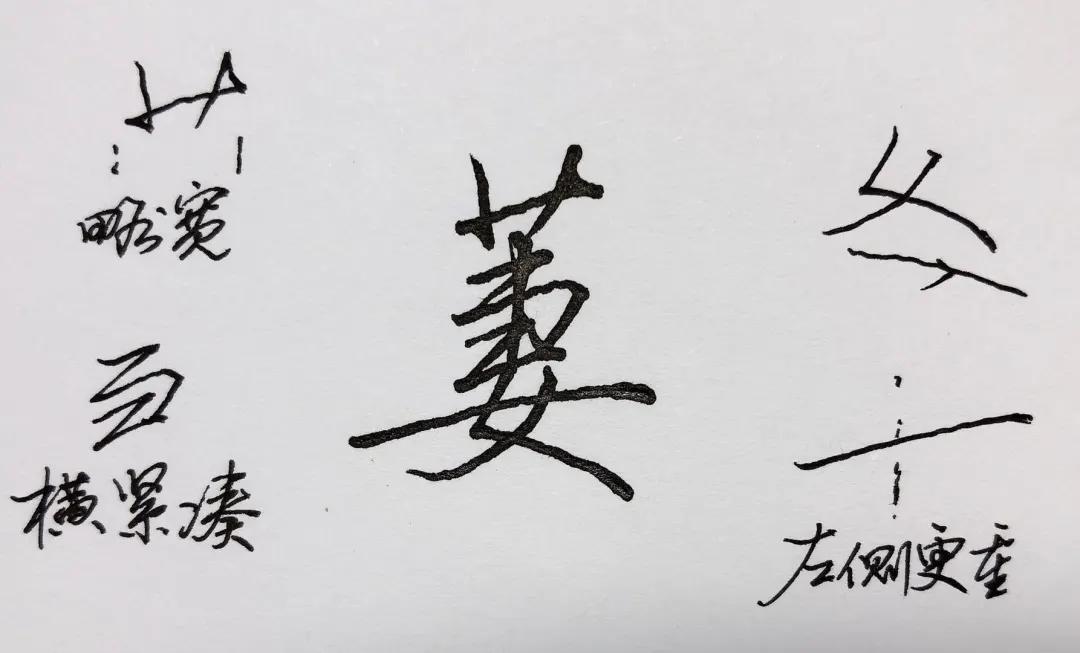 略宽
萋
横紧凑
左侧更重